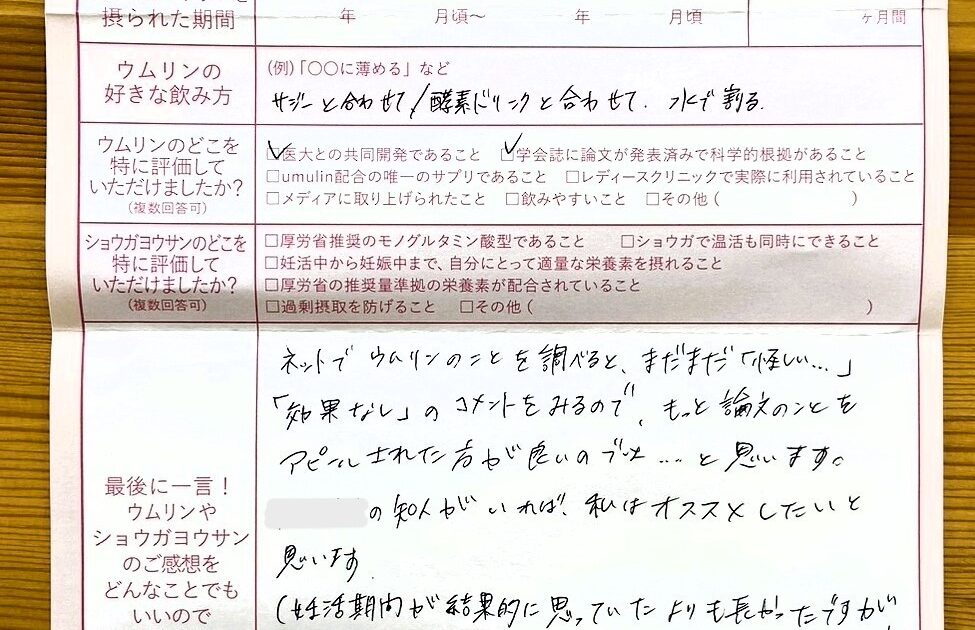 摂られた期間
年 月頃〜 年 月頃 ヶ月間
ウムリンの
好きな飲み方
(例)「〇〇に薄める」など
サジーと合わせて/酵素ドリンクと合わせて. 水で割る.
ウムリンのどこを
特に評価して
いただけましたか?
(複数回答可)
☑医大との共同開発であること ☑学会誌に論文が発表済みで科学的根拠があること
□umulin配合の唯一のサプリであること □レディースクリニックで実際に利用されていること
□メディアに取り上げられたこと □飲みやすいこと □その他( )
ショウガヨウサンのどこを
特に評価して
いただけましたか?
(複数回答可)
□厚労省推奨のモノグルタミン酸型であること □ショウガで温活も同時にできること
□妊活中から妊娠中まで、自分にとって適量な栄養素を摂れること
□厚労省の推奨量準拠の栄養素が配合されていること
□過剰摂取を防げること □その他( )
最後に一言!
ウムリンや
ショウガヨウサン
のご感想を
どんなことでも
いいので
ネットでウムリンのことを調べると、まだまだ「怪しい...」
「効果なし」のコメントをみるので、もっと論文のことを
アピールされた方が良いのでは...と思います。
の知人がいれば、私はオススメしたいと
思います.
(妊活期間が結果的に思っていたよりも長かったですが、